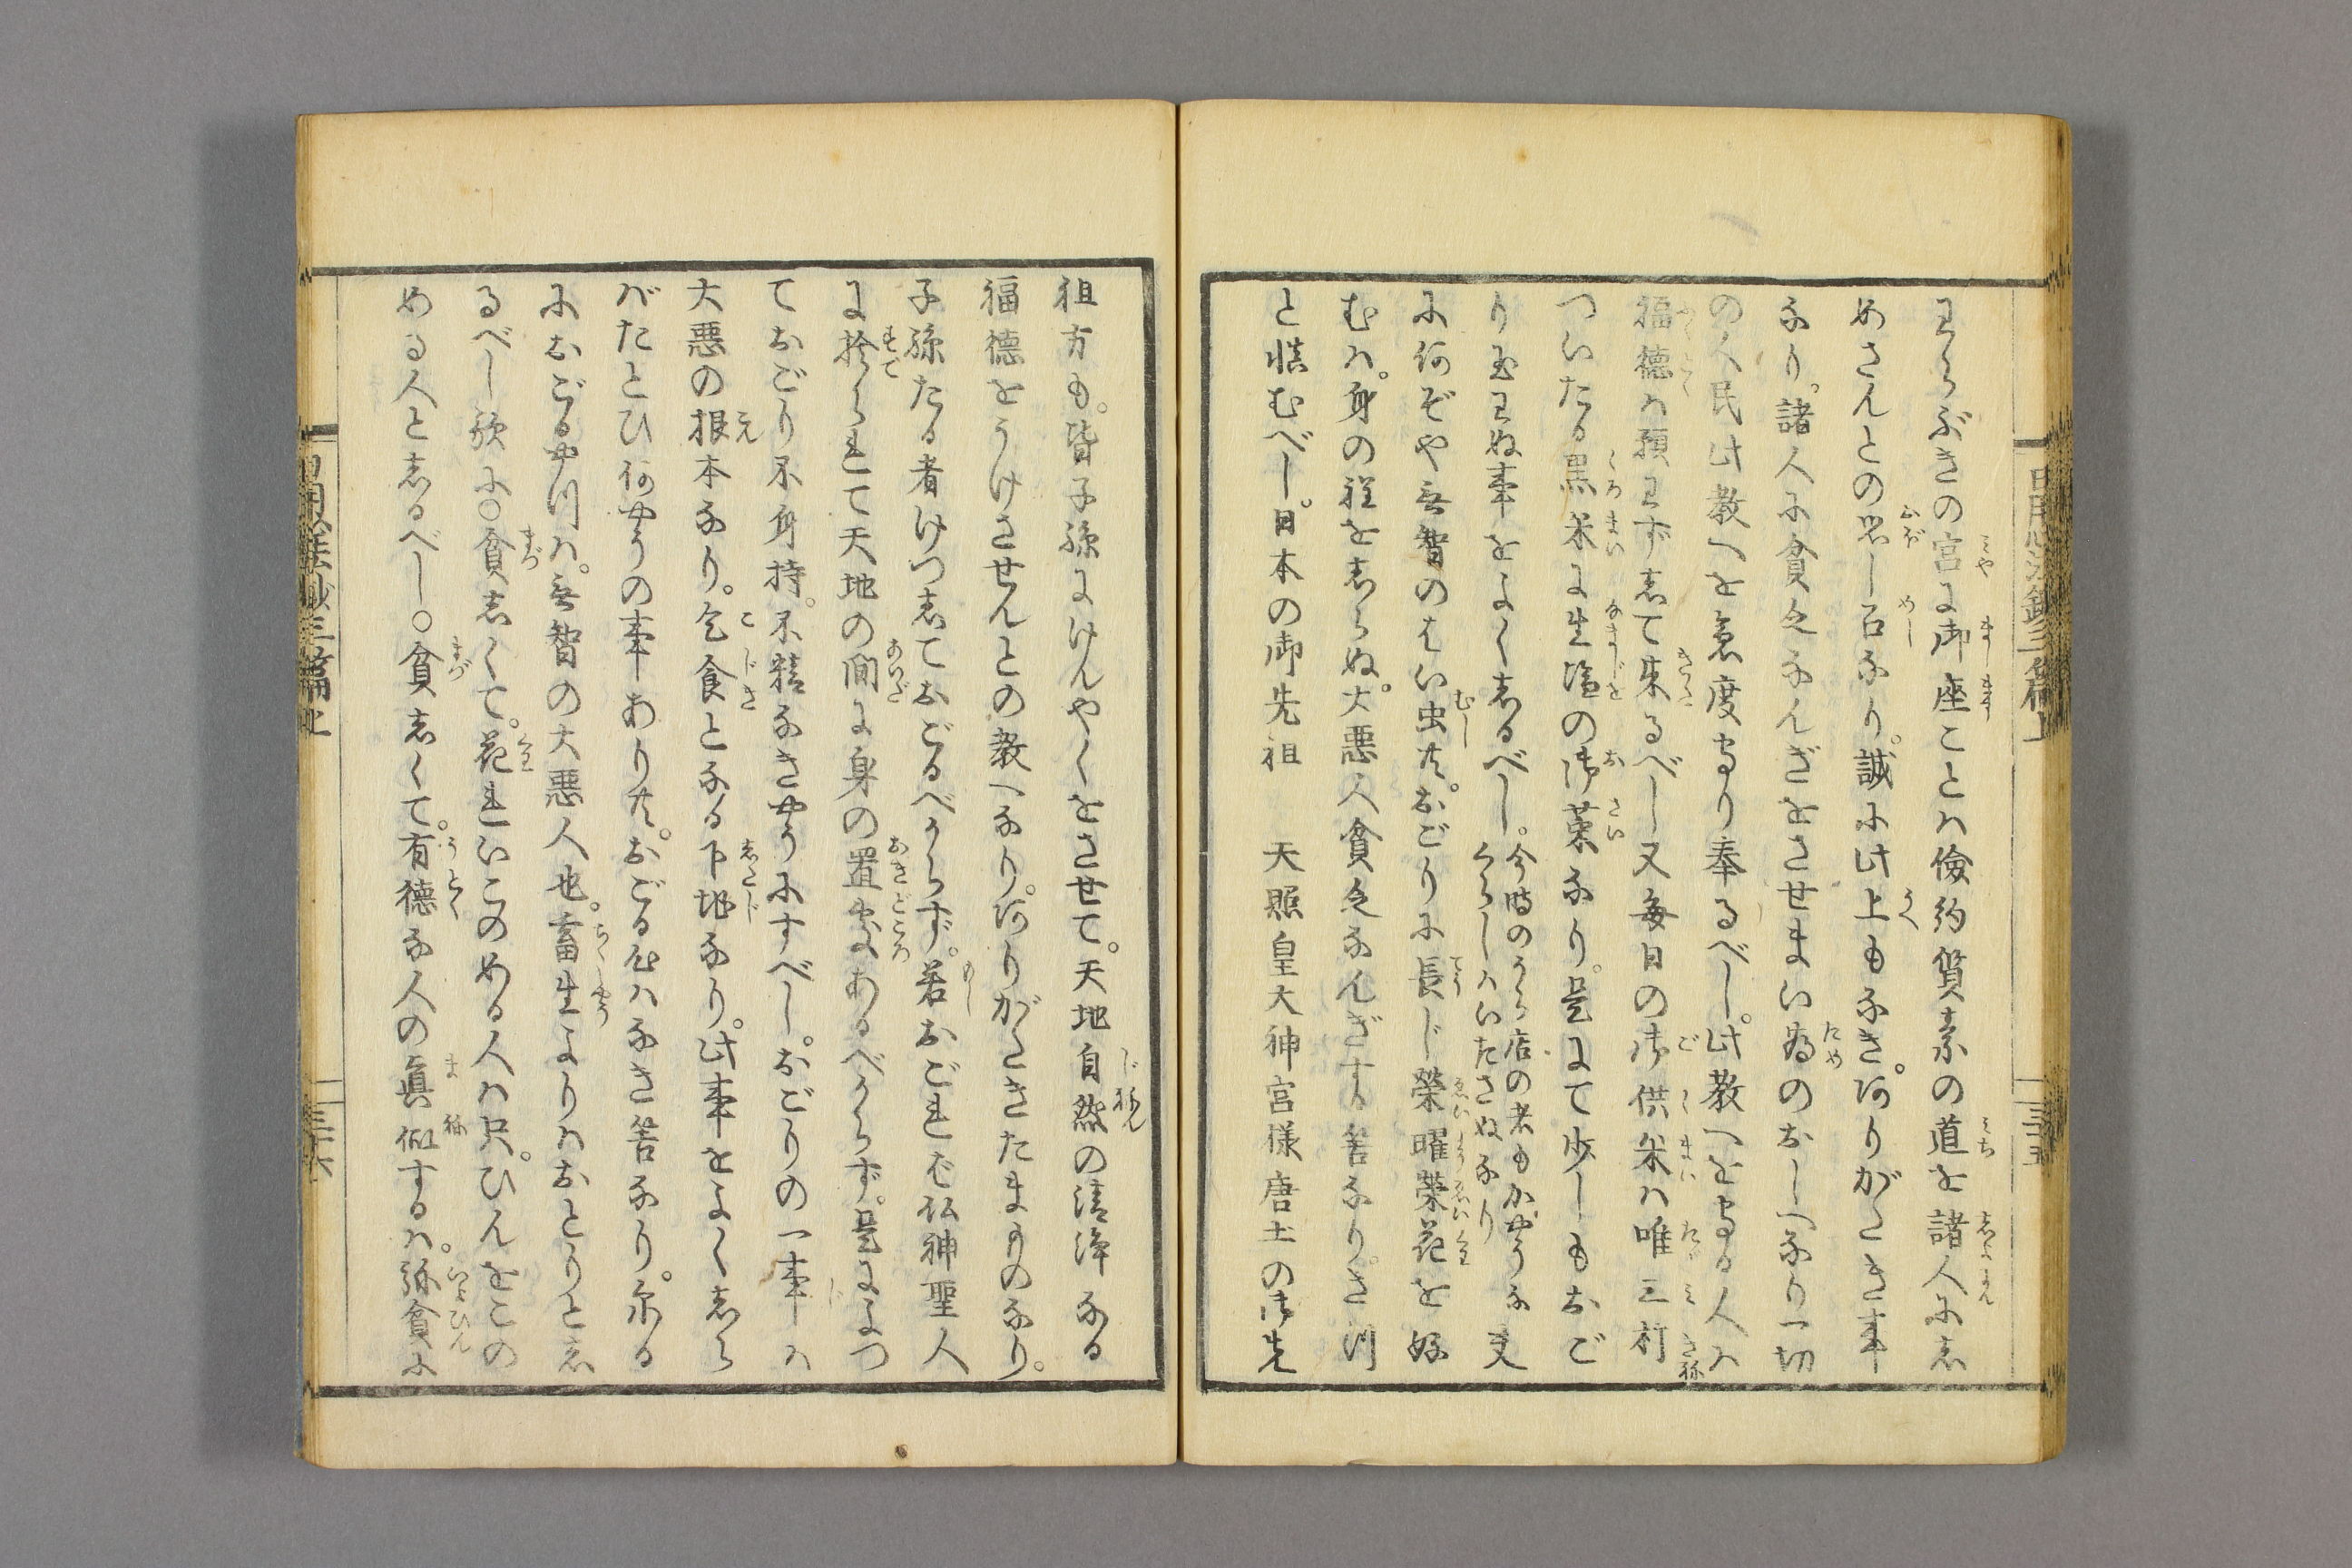 わらぶきの宮に御座ことハ儉約質素の道を諸人に志
めさんとの思し召なり。誠に此上もなき。ありがたき事
なり。諸人に貧乏なんぎをさせまい為のおしへなり一切
の人民此教へを急度守り奉るべし。此教へを守る人ハ
福徳ハ預わず志て来るべし又毎日の御供米ハ唯三杵
ついたる黒米に生塩の御菜なり。是にて少しもおご
り玉わぬ事をよく志るべし。
今時のうら店の者もかやうな
くらしハいたさぬなり
夫
に何ぞや無智のはい虫共。おごりに長じ榮曜榮花を好
むハ。身の程を志らぬ。大悪人貧乏なんぎする筈なり。さ川
と慎むべし。日本の御先祖 天照皇大神宮様唐土の御先
日用心法鈔三篇上
三十五
祖方も。皆子孫にけんやくをさせて。天地自然の清浄なる
福徳をうけさせんとの教へなり。ありがたきたまものなり。
子孫たる者けつ志ておごるべからず。若おごれば仏神聖人
に捨られて天地の間に身の置処あるべからず。是によつ
ておごり不身持。不精なきやうにすべし。おごりの一事ハ
大悪の根本なり。乞食となる下地なり。此事をよく志ら
バたとひ何やうの事あり共。おごる心ハなき筈なり。尓る
におごるや川ハ。無智の大悪人也。畜生よりハおとりと志
るべし歌に○貧志くて。花れいこのめる人ハ只。ひんをこの
める人と志るべし。○貧志くて。有徳な人の真似するハ。弥貧に
日用心法鈔三篇上
三十六